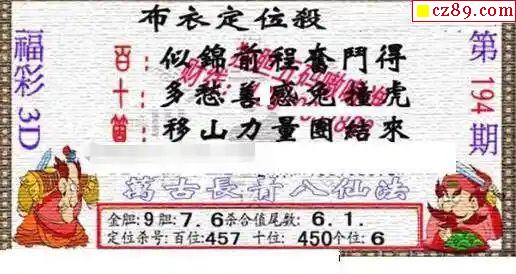 cz89.com
布衣定位殺
福彩3D
第194期
百:似錦前程奮鬥得
十:多愁善感兔撞虎
箇:移山力量團結來
萬古長青八仙法
金胆:9胆:7.6杀合值尾数:6.1.
定位杀号:百位:457 十位:450个位:6